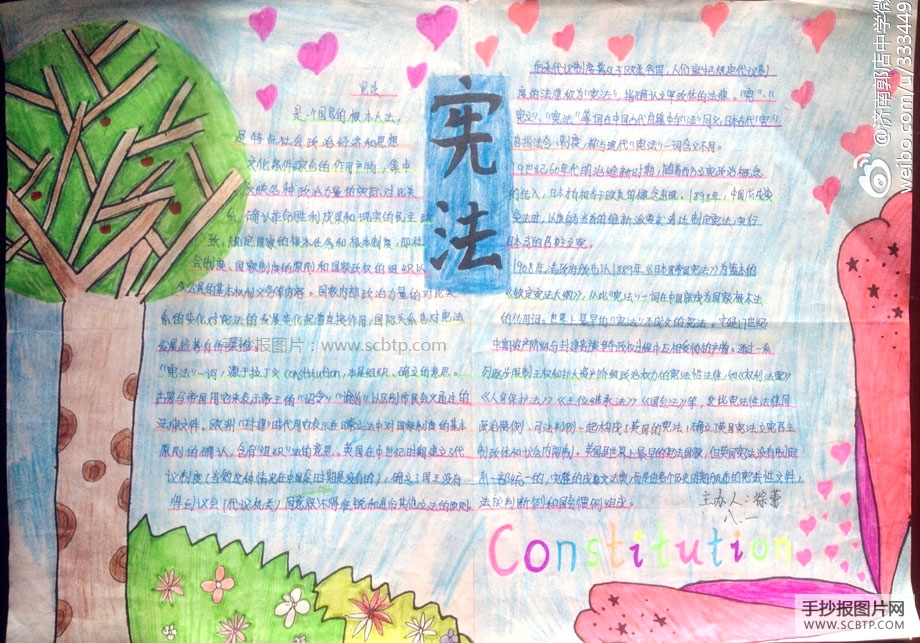 宪法
宪法
是一个国家的根本大法,
是特定社会政治经济和思想
文化条件综合的作用产物,集中
反映各种政治力量的实际对比关
系,确认革命胜利成果和现实的民主政
致,规定国家的根本任务和根本制度,即社
会制度、国家制度的原则和国家政权的组织以
及公民的基本权利义务等内容。国家内部政治力量的对比关
系的变化对宪法的发展变化起着直接作用,国际关系也对宪法
发展趋势有所影响。
“宪法”一词,源于拉丁文constitution,本是组织、确立的意思。
古罗马帝国用它来表示帝王的“诏令”“谕旨”,以区别市民会议通过的
法律文件。欧洲封建时代用它表示在日常立法中对国家制度的基本
原则的确认,含有“组织”法的意思。英国在中世纪中期建立了代
议制度
确立了国王没有
得到议会(代议机关)同意就不得征税和进行其他立法的原则。
后来代议制度普及于欧美各国,人们就把规定代议制
度的法律称为“宪法”,指确认立宪政体的法律。“宪”、“
宪令”、“宪法”等词在中国古代典籍中与“法”同义,日本古代“宪”
也指法令、制度,都与现代“宪法”一词含义不同。
19世纪60年代明治维新时期,随着西方立宪政治概念
的传入,日本有相当于欧美的概念出现。1898年,中国戊戌变
变法时,以康有为为首的维新派要求清廷制定宪法,实行
日本式的君主立宪。
1908年清政府颁布从1889年《日本帝国宪法》为蓝本的
《钦定宪法大纲》,从此“宪法”一词在中国就成为国家根本法
的专用词。世界上最早的“宪法”不成文的宪法。它是17世纪
中期资产阶级与封建贵族争夺政权过程中互相妥协的产物。通过一系
列逐步限制王权和扩大资产阶级政治权力的宪法性法律,如《权利法案》
《人身保护法》《王位继承法》《国会法》等,这些宪法性法律同
政治惯例、司法判例一起构成了英国的宪法,确立了英国宪法立宪君主
制政体和议会内阁制。英国是世界上最早的宪法国家,但英国宪法没有制定
为一部统一的,完整的成文宪法,而是由各个历史时期颁布的宪法性文件,
法院判断例和国会惯例组成。
主办人:徐蕾
八.一
Constitution
手抄报图片:www.scbtp.com
@济南郭店中学微
weibo.com/u/333449
手抄报图片网
WWW.SCBTP.COM